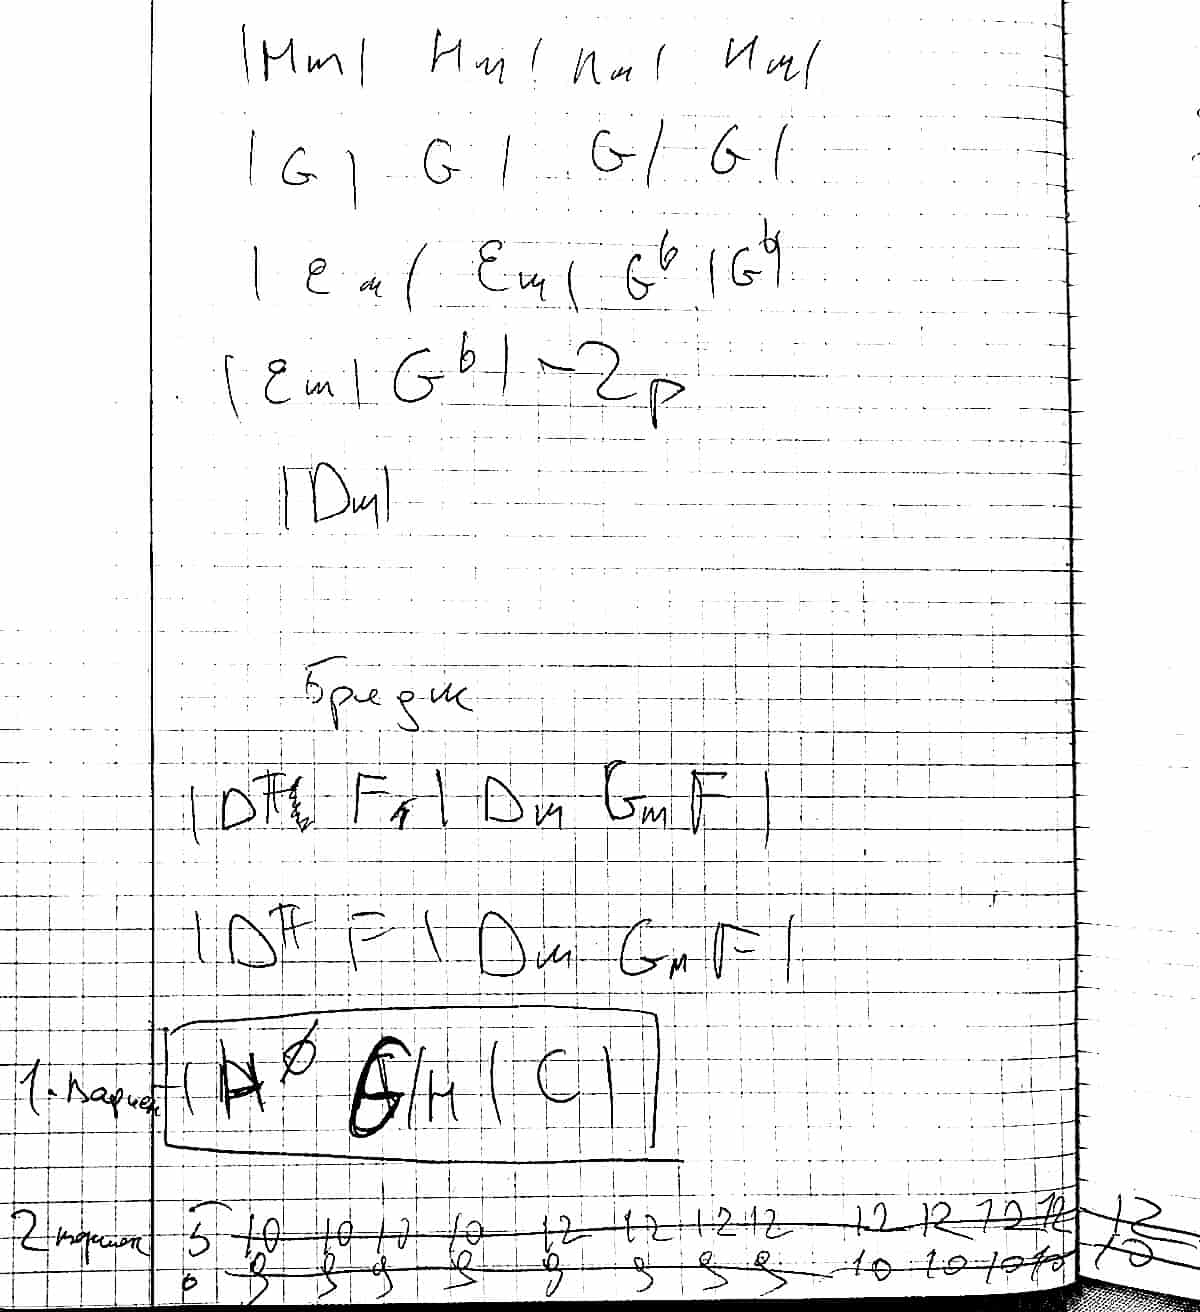 |Hm| Hm| Hm| Hm|
|G| G| G| G|
|Em| Em| G♭|G♭|
|Em|G♭| - 2р
|Dm|
Бриджик
|D# F| Dm Gm F|
|D# F| Dm Gm F|
1. Вариан |Hø G/H | C|
2 вариан 5 10 10 10 10 12 12 12 12 12 12 12 12 12
6 9 9 9 9 9 9 9 9 10 10 10 10 10